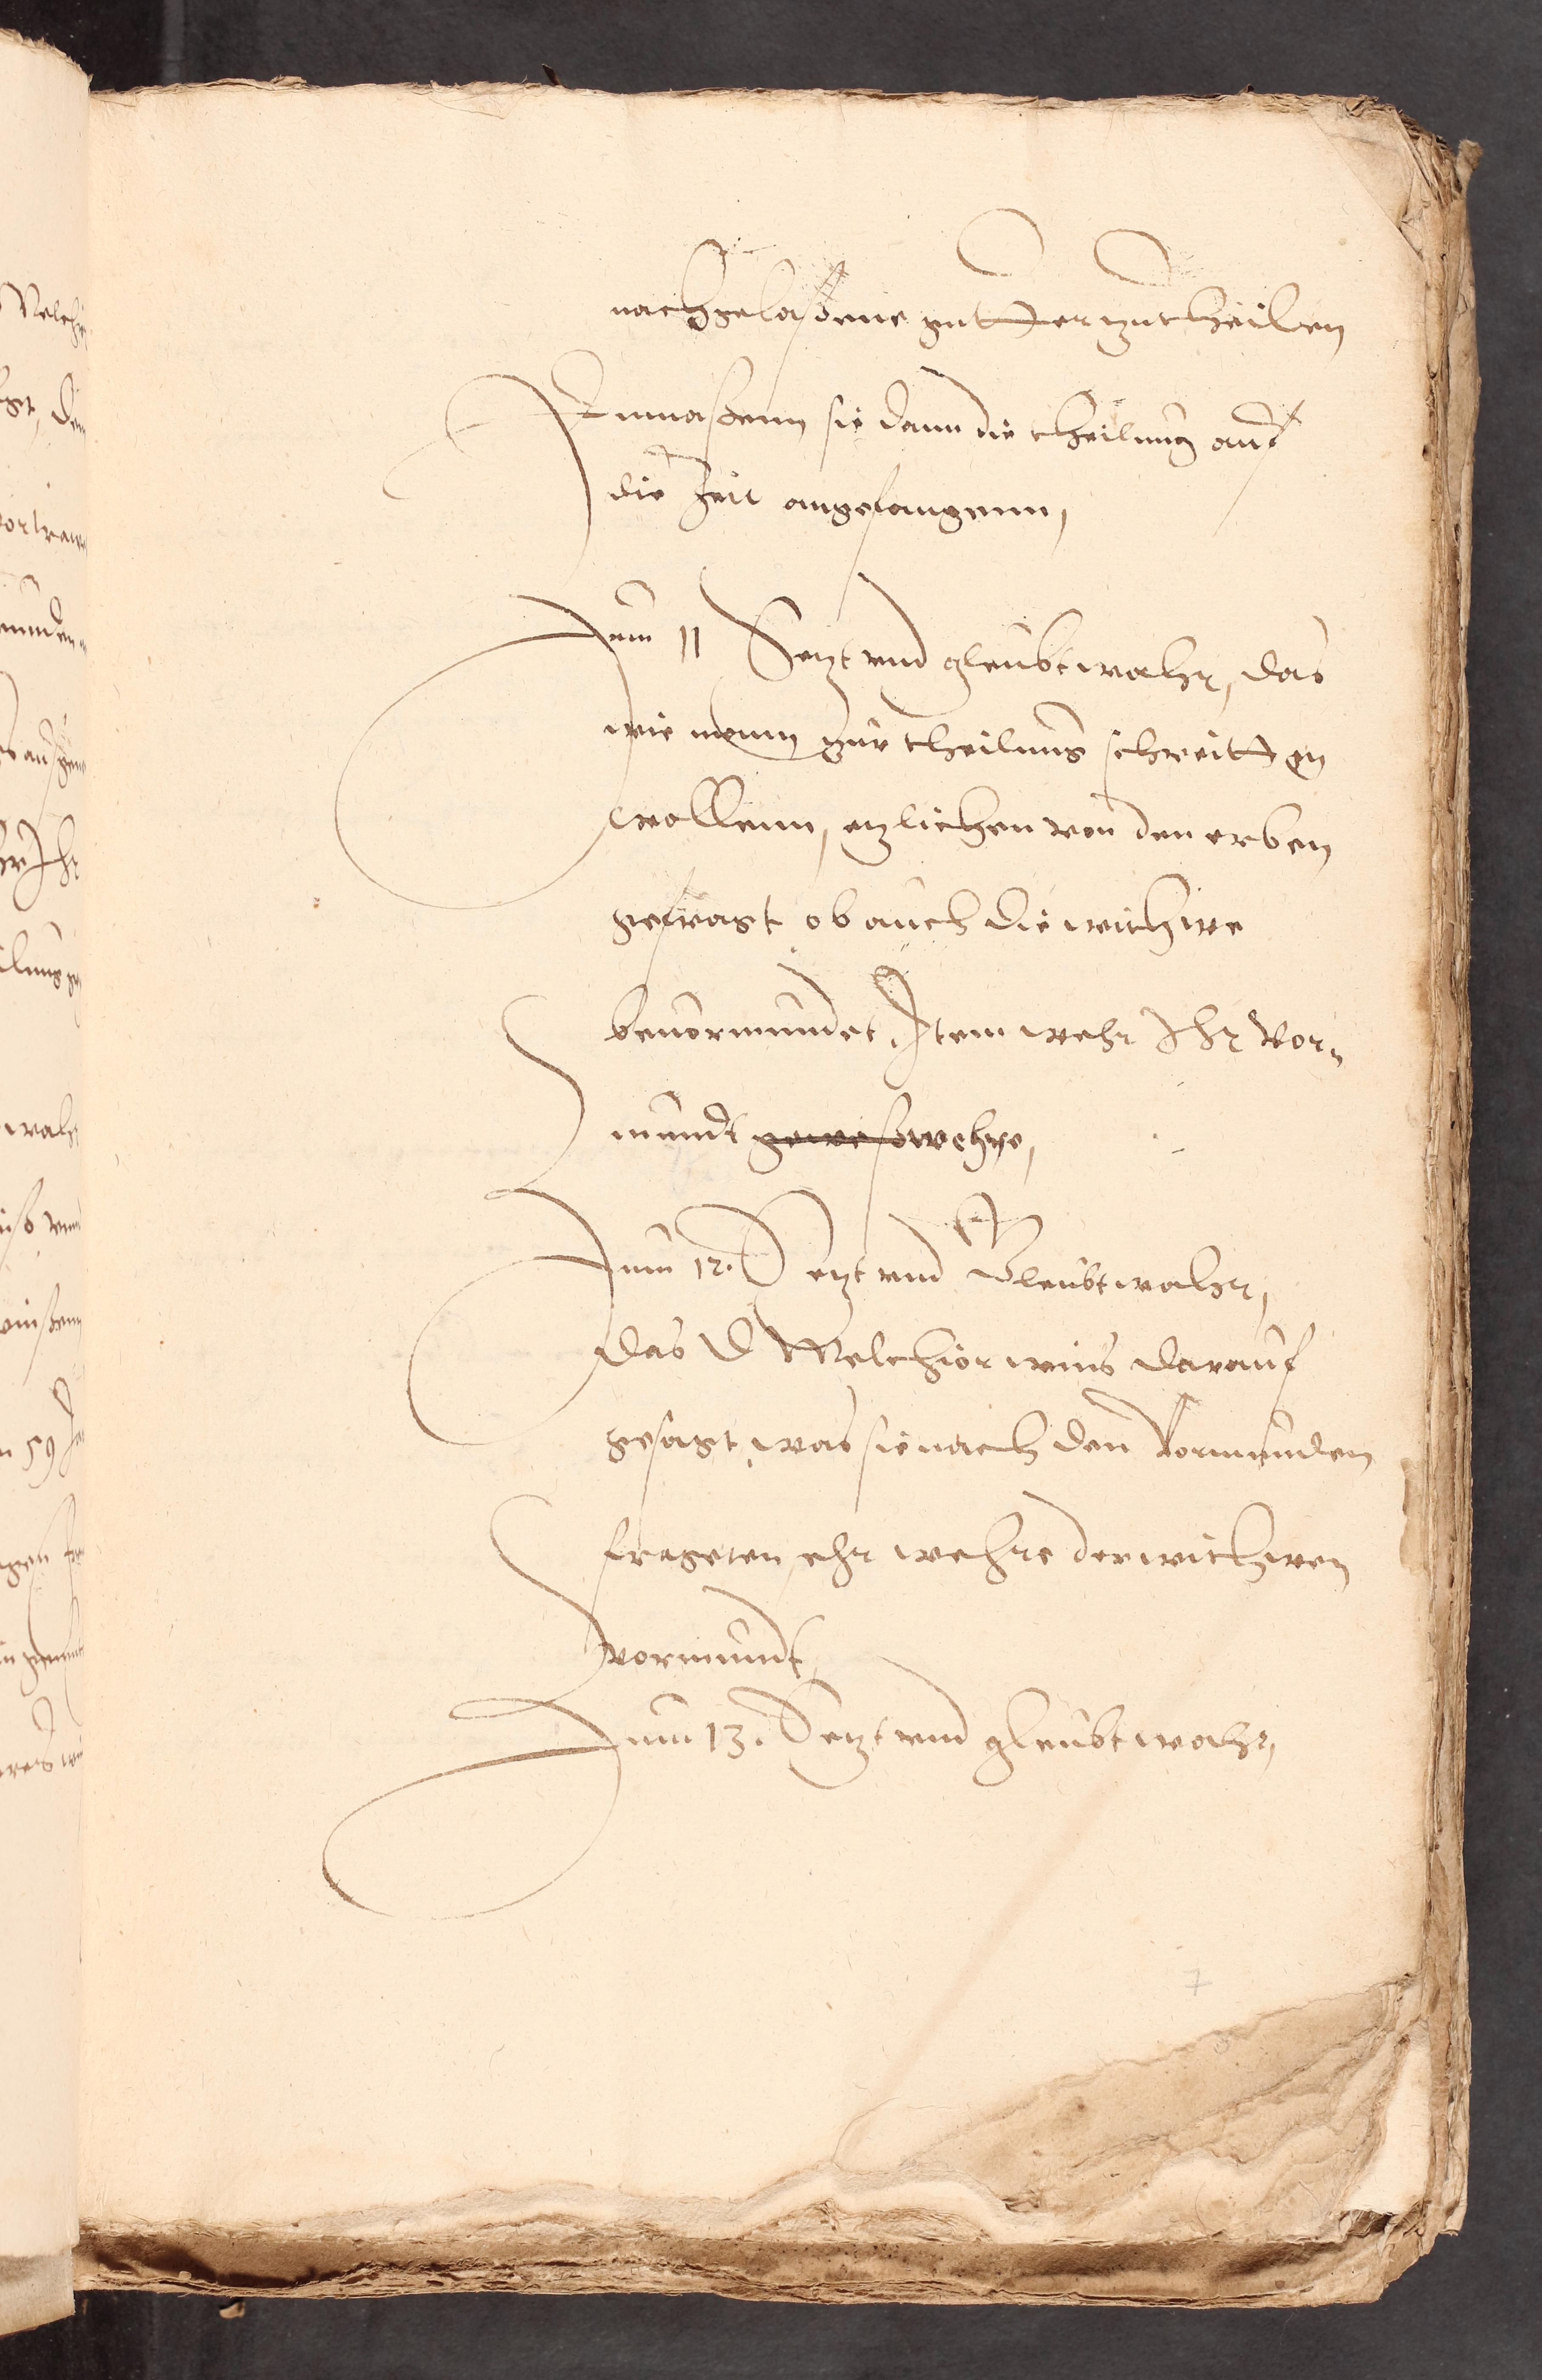 nachgelaßene gutter zutheilen
Inmaßenn sie dann die theilung auf
die Zeit angefangenn,
Zum 11 Setzt vnd gleubt wahr, das
wie mann zur theilung schreitten
wollenn, etzlichen von den erben
gefragt ob auch die withwe
beuormundet, Item wehr Ihr Vor„
mundt geweß wehre,
Zum 12. Setzt vnd Gleubt wahr,
das D Melchior wins darauf
gesagt, was sie nach den Vormunden
frageten, ehr wehre der withwen
vormundt,
Zum 13. Setzt vnd gleubt wahr,
7